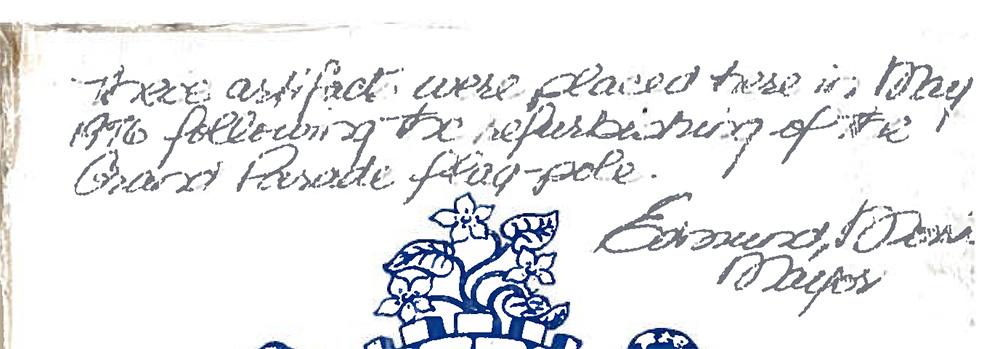 These artifacts were placed here in May
1976 following the refurbishing of the
Grand Parade flag-pole.
Edmund
Mayor